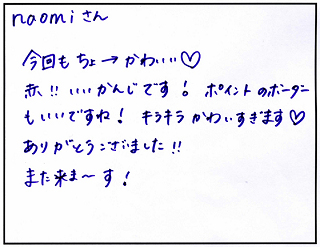 naomiさん
今回もちょ→かわいい♡
赤!!いいかんじです! ポイントのボーダー
もいいですね! キラキラかわいすぎます♡
ありがとうございました!!
また来ま～す!